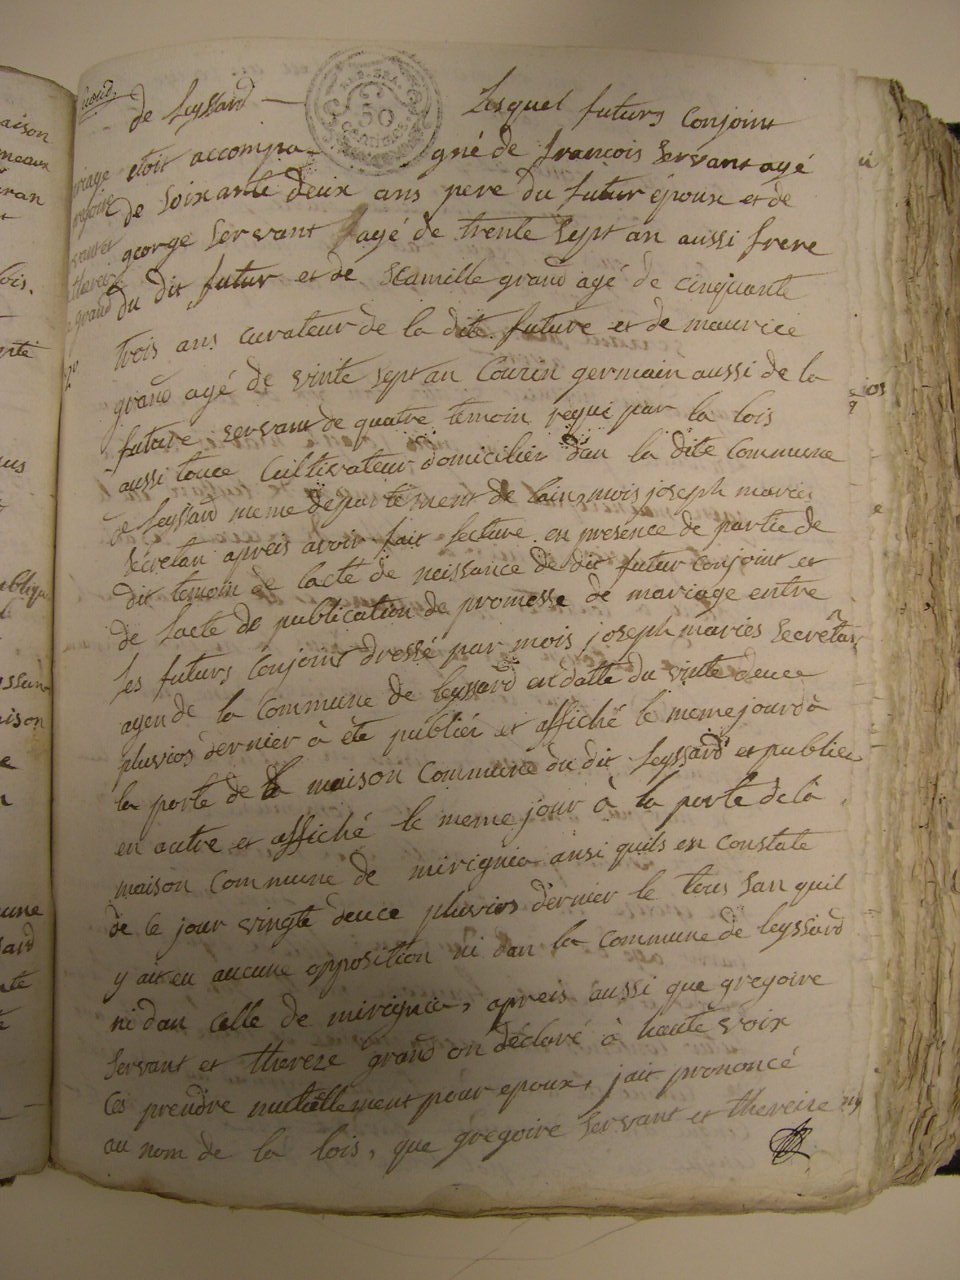 de Leyssard — Lesquel futurs Conjoint
REP. FRA.
50
Centimes
etoit accompa- gné de francois Servant agé
de Soixante deux ans pere du futur époux et de
george Servant agé de trente Sept an aussi frere
du dit futur et de Camille grand agé de cinquante
trois ans curateur de la dite future et de maurice
grand agé de vinte sept an Couzin germain aussi de la
future servant de quatre temoin requi par la lois
aussi touce Cultivateur domicilier dan la dite Commune
de Leyssard meme departement de lain, mois joseph maries
Secretan apreis avoir fait lecture en presence de partie de
dit temoin de lacte de neissance de dit futur conjoint et
de lacte de publication de promesse de mariage entre
Les futurs Conjoint dressé par mois joseph maries Secretan
agen de la Commune de leyssard en datte du vinte deuce
pluvios dernier à été publiér et affiché le meme jour à
la porte de la maison Commune du dit Leyssard et publier
en autre et affiché le meme jour à la porte de la
maison Commune de mirignia ansi quils en constate
de le jour vingte deuce pluvios dernier le tous San quil
y au eu aucune opposition ni dan la Commune de leyssard
ni dan celle de mirignia, apreis aussi que gregoire
Servant et thereze grand on déclaré à haute voix
Ces prendre mutuellement pour epoux, jait prononcé
au nom de la lois, que gregoire Servant et thereize